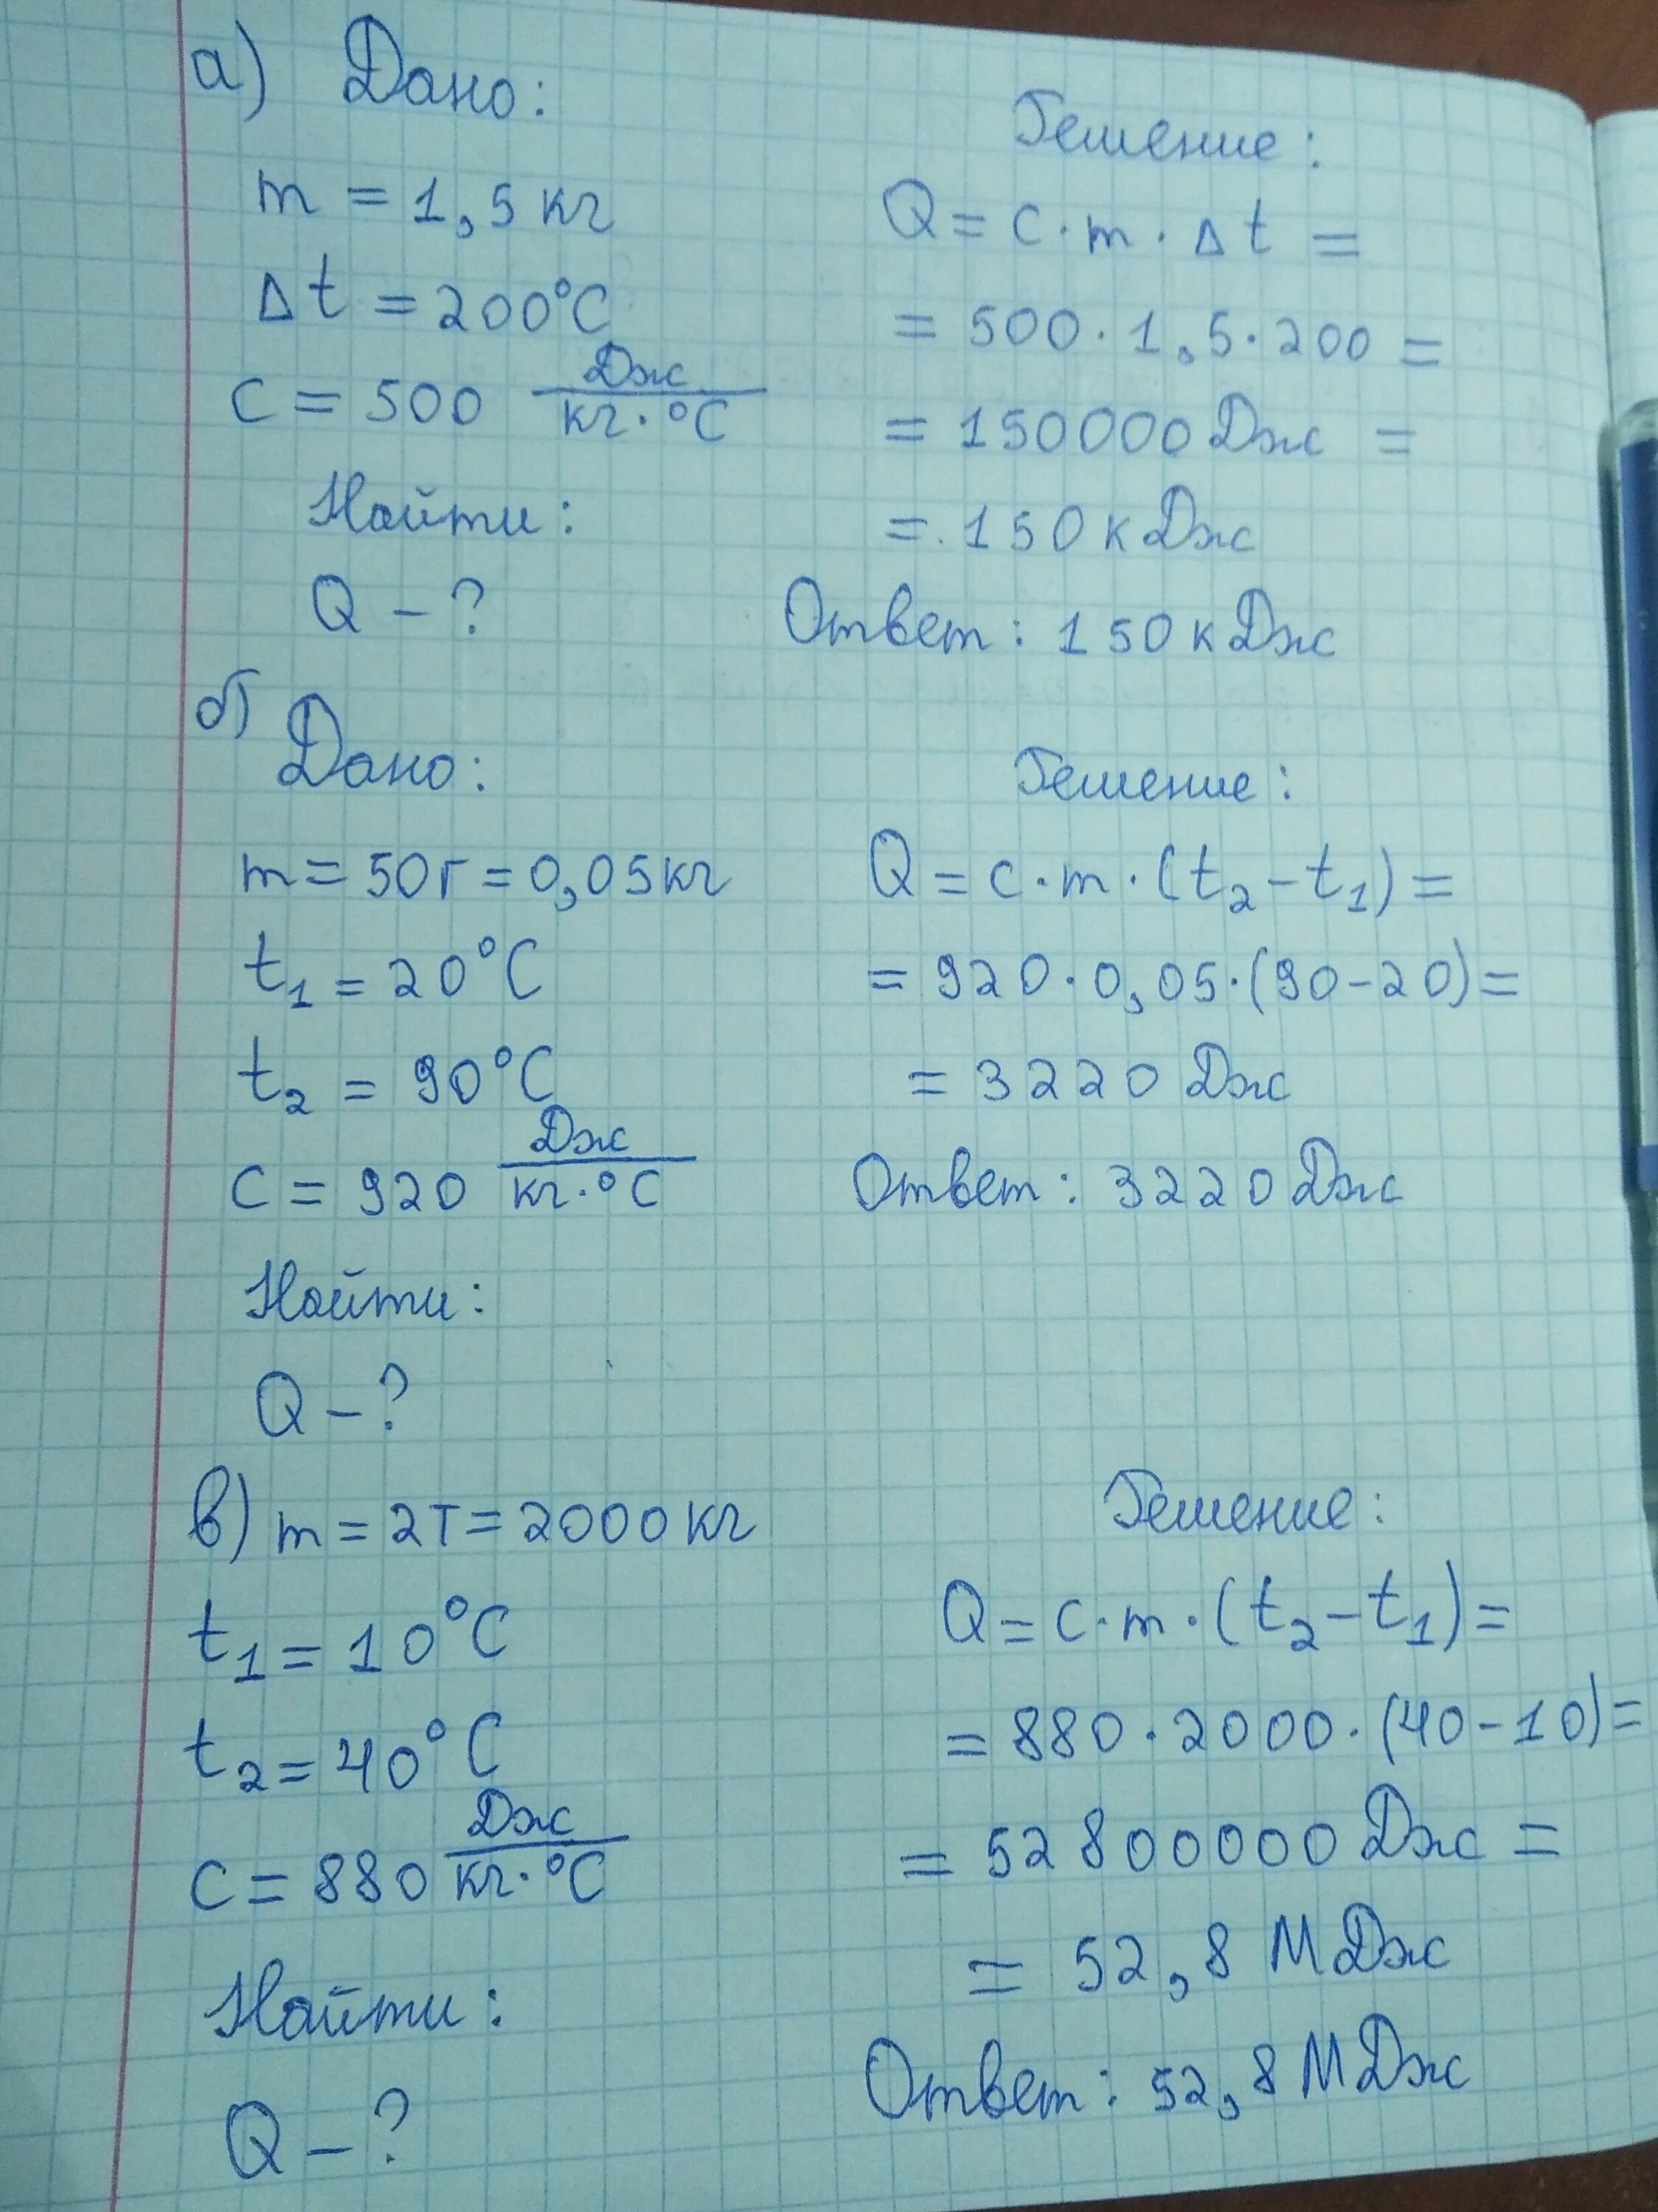 а) Дано:
m = 1,5 кг
Δt = 200°C
c = 500 Дж/кг·°C
Найти:
Q – ?
Решение:
Q = c·m·Δt =
= 500·1,5·200 =
= 150000 Дж =
= 150 кДж
Ответ: 150 кДж
б) Дано:
m = 50г = 0,05 кг
t₁ = 20°C
t₂ = 90°C
c = 920 Дж/кг·°C
Найти:
Q – ?
Решение:
Q = c·m·(t₂ – t₁) =
= 920·0,05·(90 – 20) =
= 3220 Дж
Ответ: 3220 Дж
в) m = 2т = 2000 кг
t₁ = 10°C
t₂ = 40°C
c = 880 Дж/кг·°C
Найти:
Q – ?
Решение:
Q = c·m·(t₂ – t₁) =
= 880·2000·(40 – 10) =
= 52800000 Дж =
= 52,8 МДж
Ответ: 52,8 МДж